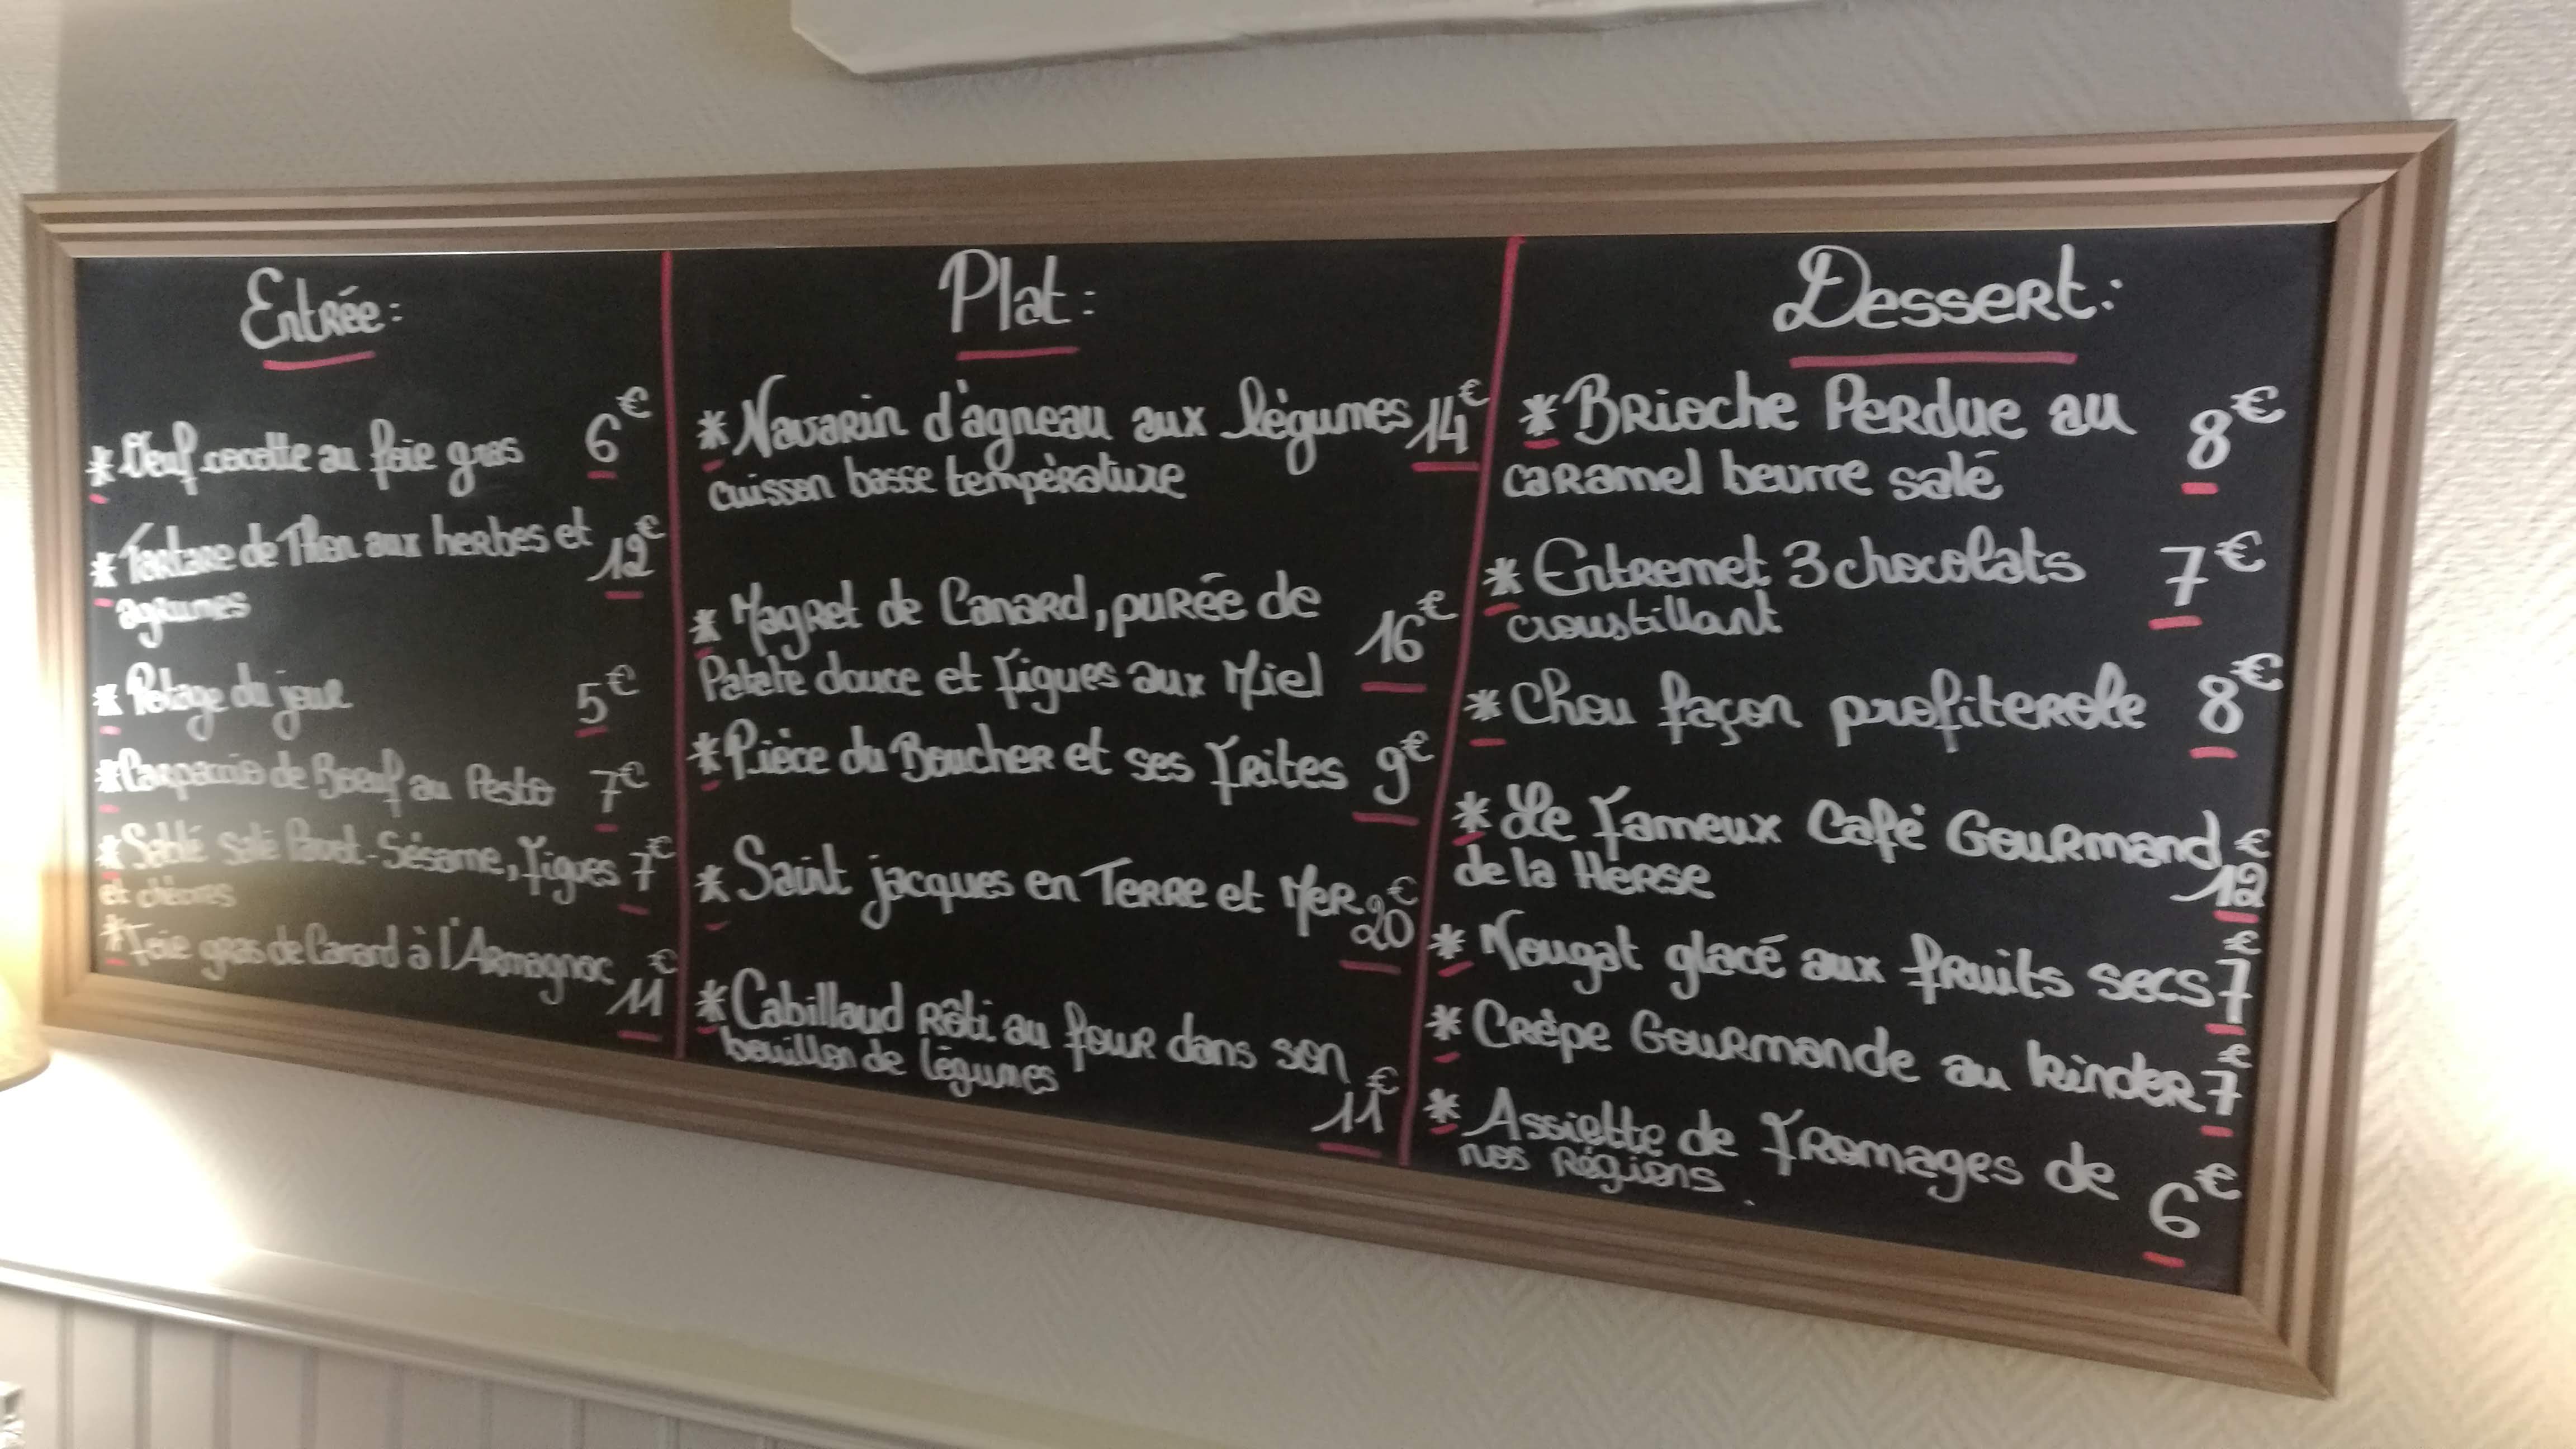 Entrée:
* Oeuf cocotte au foie gras 6€
* Tartare de Thon aux herbes et 12€
agrumes
* Potage du jour 5€
* Carpaccio de Boeuf au Pesto 7€
* Sablé salé Pavot-Sésame, Figues 7€
et chèvres
* Foie gras de Canard à l'Armagnac 11€
Plat:
* Navarin d'agneau aux légumes 14€
cuisson basse température
* Magret de Canard, purée de 16€
Patate douce et Figues aux Miel
* Pièce du Boucher et ses Frites 9€
* Saint jacques en Terre et Mer 20€
* Cabillaud rôti au four dans son
bouillon de légumes 11€
Dessert:
* Brioche Perdue au 8€
caramel beurre salé
* Entremet 3 chocolats 7€
croustillant
* Chou façon profiterole 8€
* Le Fameux Café Gourmand 12€
de la Herse
* Nougat glacé aux fruits secs 7€
* Crêpe Gourmande au kinder 7€
* Assiette de Fromages de 6€
nos Régions.